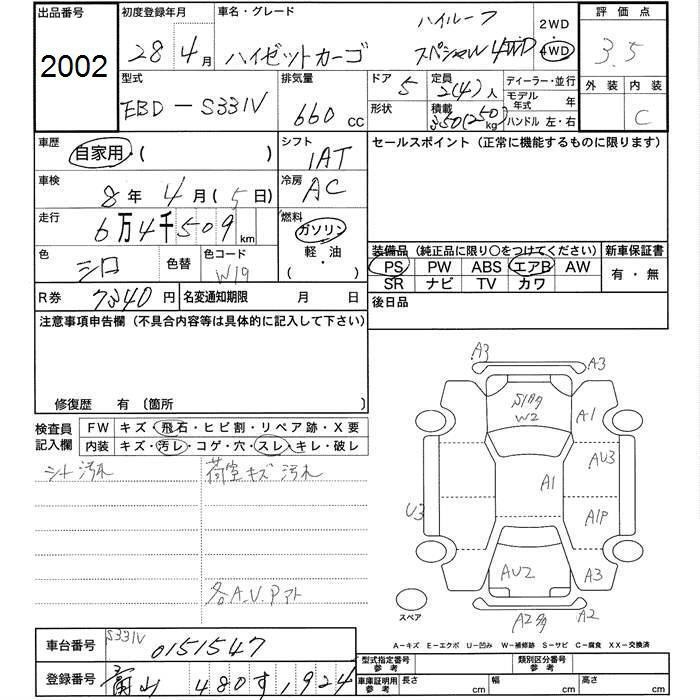 出品番号 初度登録年月 車名・グレード 評価点
2002 28年4月 ハイゼットカーゴ ハイルーフ スペシャル 4WD 2WD 4WD 3.5
型式 排気量 ドア 定員 ディーラー・並行 外装 内装
EBD-S331V 660cc 5 2(4)人 モデル年式 年 C
形状 積載 350(250)kg ハンドル 左・右
車歴 自家用・( ) シフト 1AT セールスポイント(正常に機能するものに限ります)
車検 8年4月(5日) 冷房 AC
走行 6万4千509km 燃料 ガソリン 軽・油 ・( )
色 シロ 色替 色コード W19
装備品(純正品に限り○をつけてください) 新車保証書
PS PW ABS エアB AW 有・無
SR ナビ TV カワ
R券 7340円 名変通知期限 月 日 後日品
注意事項申告欄(不具合内容等は具体的に記入して下さい)
修復歴 有(箇所
検査員記入欄 FW キズ・飛石・ヒビ割・リペア跡・X要
内装 キズ・汚レ・コゲ・穴・スレ・キレ・破レ
シート汚れ 荷室キズ 汚れ
各A.V.Pアト
A3 A3
W2 A1
AU3
A1
U3 A1P
AU2 A3
A2
スペア
A-キズ E-エクボ U-凹み W-補修跡 S-サビ C-腐食 XX-交換済
車台番号 S331V 0151547
型式指定番号 参考 類別区分番号 参考
登録番号 富山 480す1924
車庫証明用 参考 長さ cm 幅 cm 高さ cm